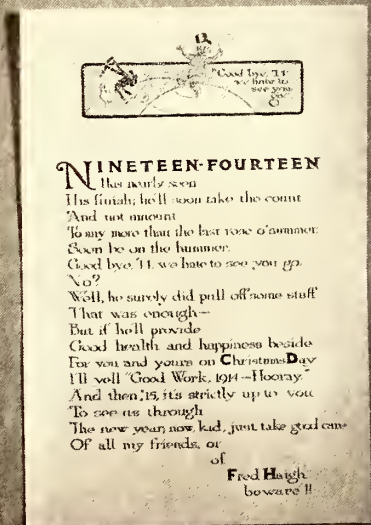 "Good bye, '14
we hate to
see you
go."
NINETEEN-FOURTEEN
Has nearly seen
His finish; he'll soon take the count
And not amount
To any more than the last rose o' summer.
Soon be on the hummer.
Good bye, '14, we hate to see you go.
No?
Well, he surely did pull off some stuff
That was enough—
But if he'll provide
Good health and happiness beside
For you and yours on Christmas Day
I'll yell "Good Work, 1914—Hooray."
And then, '15, it's strictly up to you
To see us through
The new year, now, kid, just take good care
Of all my friends, or
of
Fred Haigh
beware!!